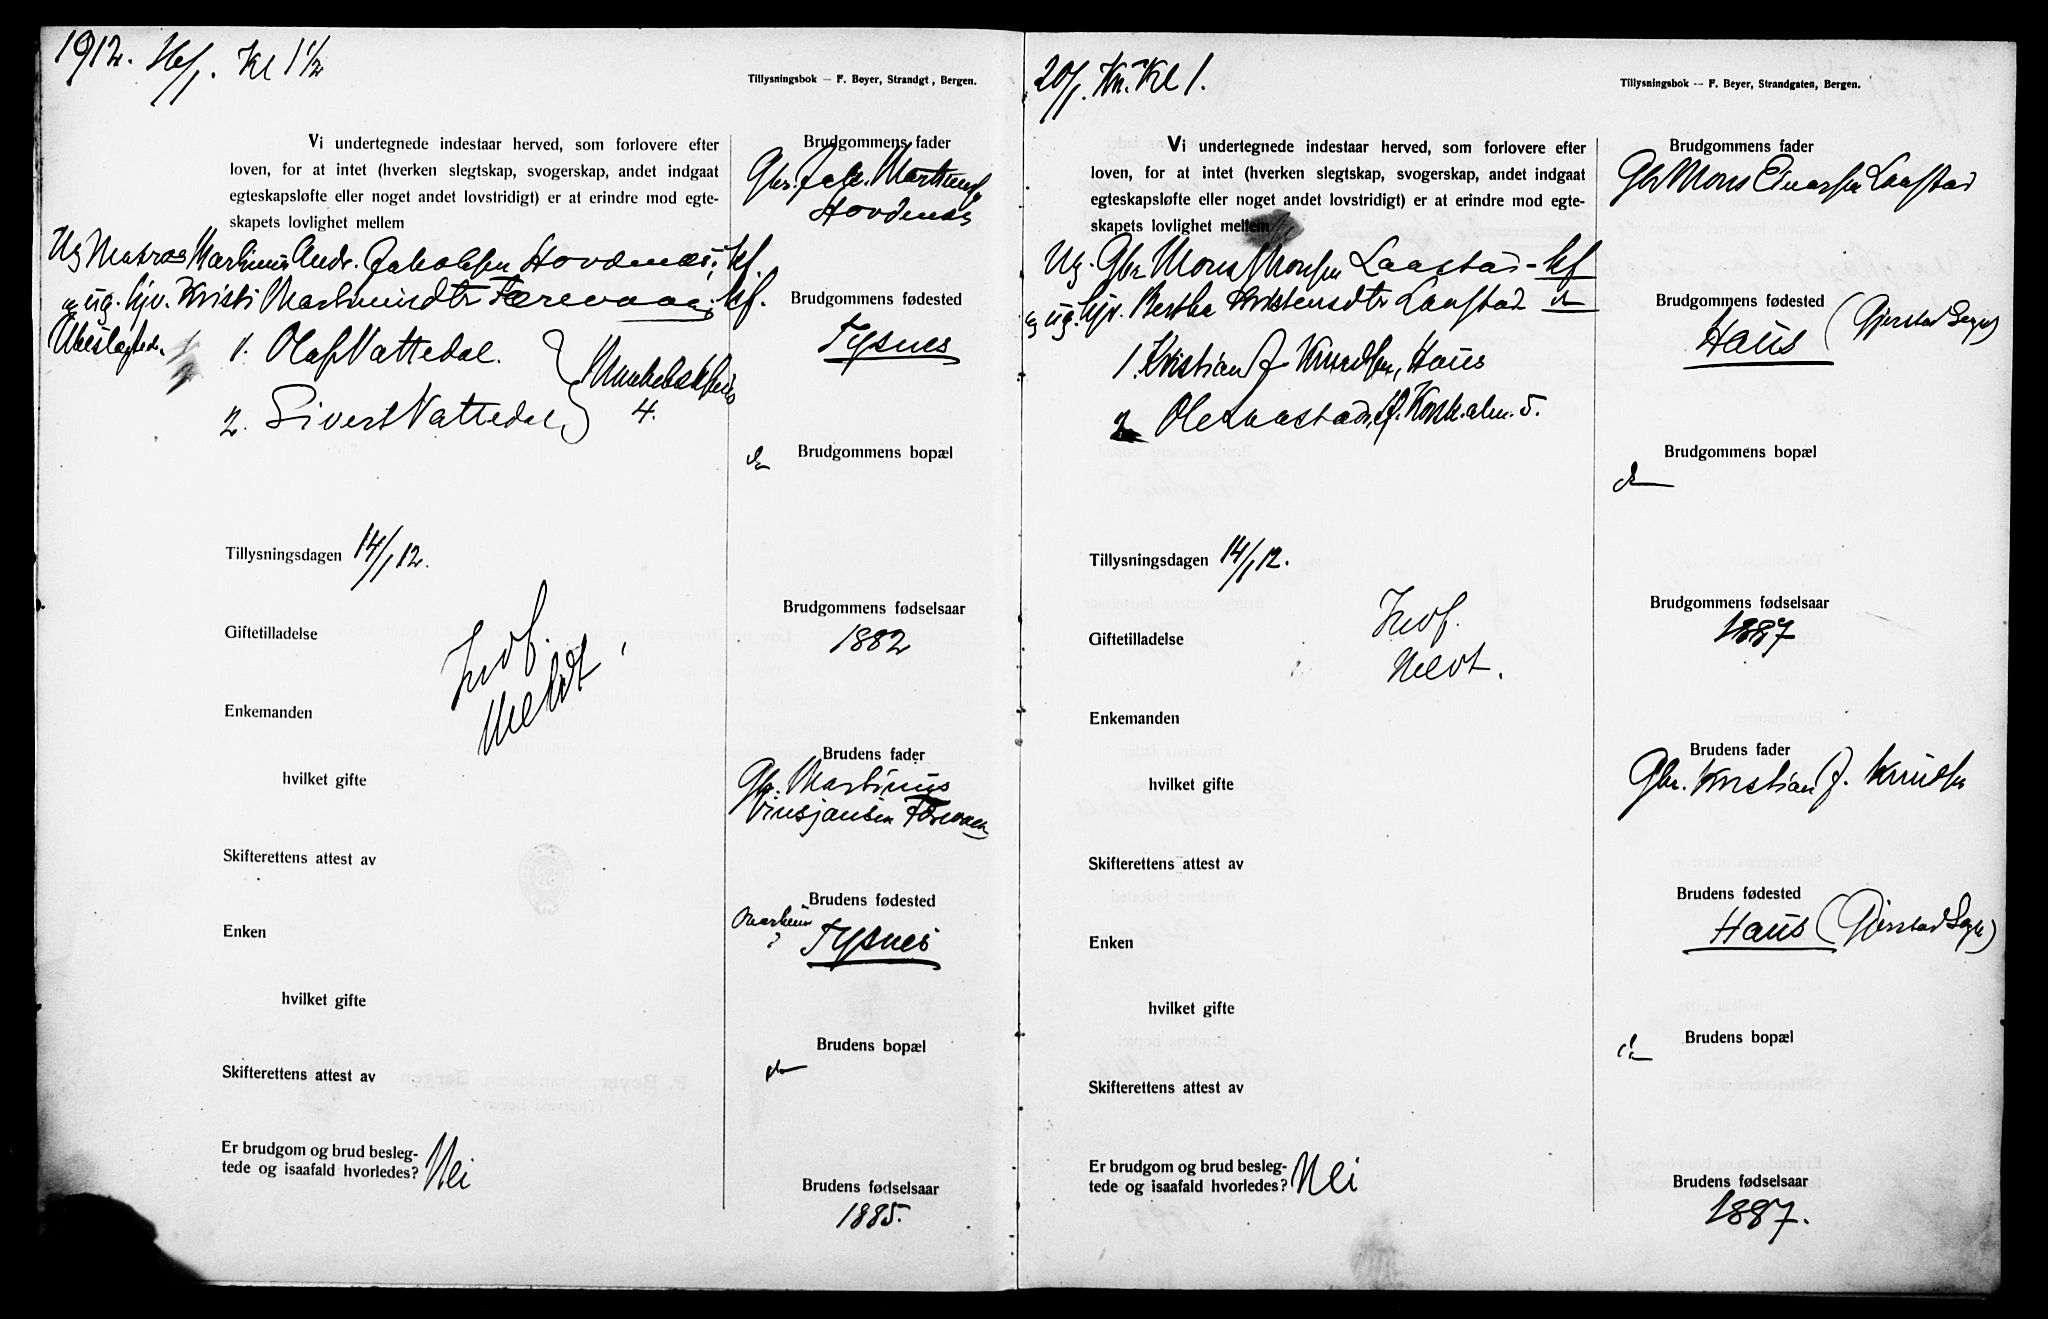 1912. 16/1. Kl 1 1/2
Tillysningsbok — F. Beyer, Strandgt, Bergen.
Vi undertegnede indestaar herved, som forlovere efter
loven, for at intet (hverken slegtskap, svogerskap, andet indgaat
egteskapsløfte eller noget andet lovstridigt) er at erindre mod egte-
skapets lovlighet mellem
Ug Matros Martinus Andr. Jakobsen Hovdenæs, kf.
og ug. Kristi Martinusdtr Færevaag. kf.
1. Olaf Vattedal.
2. Sivert Vattedal
4.
Tillysningsdagen 14/1 12.
Giftetilladelse
Indf.
Meldt
Enkemanden
hvilket gifte
Skifterettens attest av
Enken
hvilket gifte
Skifterettens attest av
Er brudgom og brud besleg-
tede og isaafald hvorledes? Nei
Brudgommens fader
Gbr. Jak. Martinus
Hovdenæs
Brudgommens fødested
Tysnes
Brudgommens bopæl
do
Brudgommens fødselsaar
1882
Brudens fader
Gbr. Martinus
Færevaag
Brudens fødested
Tysnes
Brudens bopæl
do
Brudens fødselsaar
1885.
20/1. Kl 1.
Tillysningsbok — F. Beyer, Strandgaten, Bergen.
Vi undertegnede indestaar herved, som forlovere efter
loven, for at intet (hverken slegtskap, svogerskap, andet indgaat
egteskapsløfte eller noget andet lovstridigt) er at erindre mod egte-
skapets lovlighet mellem
Ug. Gbr Mons Monsen Laastad - kf
og ug. Bertha Kristensdtr Laastad do
1. Kristian J. Knudsen, Haus
2 Ole Laastad, Korsk.alm. 5.
Tillysningsdagen 14/1 12.
Giftetilladelse
Indf.
Meldt.
Enkemanden
hvilket gifte
Skifterettens attest av
Enken
hvilket gifte
Skifterettens attest av
Er brudgom og brud besleg-
tede og isaafald hvorledes? Nei
Brudgommens fader
Gbr Mons Einarsen Laastad
Brudgommens fødested
Haus (Gjerstad Sogn)
Brudgommens bopæl
do
Brudgommens fødselsaar
1887
Brudens fader
Gbr. Kristian J. Knudsen
Brudens fødested
Haus (Gjerstad Sogn)
Brudens bopæl
do
Brudens fødselsaar
1887.